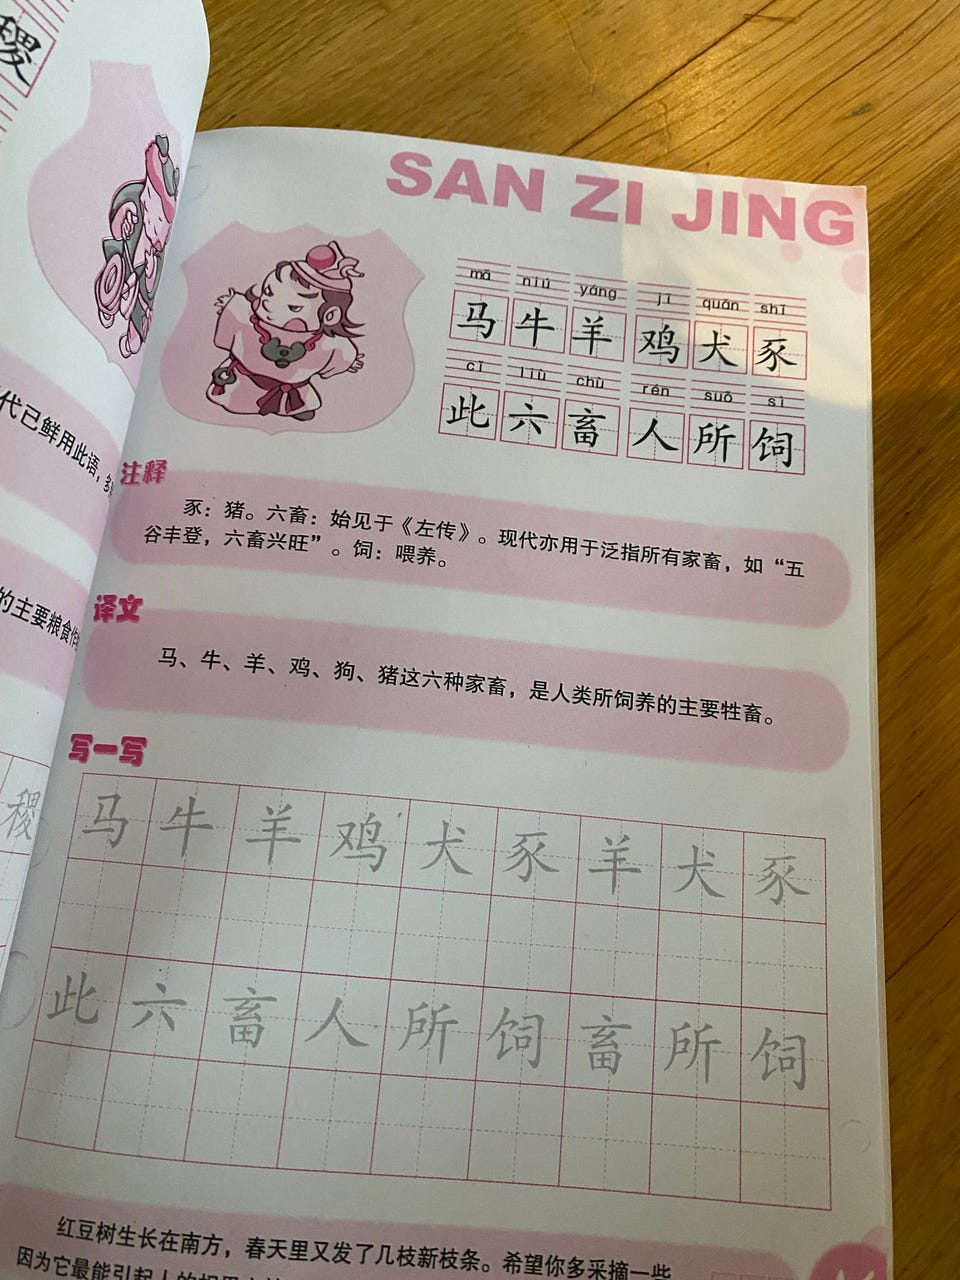 稷
代已鲜用此语，多
的主要粮食作
稷
SAN ZI JING
mǎ niú yáng jī quǎn shǐ
马牛羊 鸡犬豕
cǐ liù chù rén suǒ sì
此六畜 人所饲
注释
豕：猪。六畜：始见于《左传》。现代亦用于泛指所有家畜，如“五
谷丰登，六畜兴旺”。饲：喂养。
译文
马、牛、羊、鸡、狗、猪这六种家畜，是人类所饲养的主要牲畜。
写一写
马牛羊鸡犬豕羊犬豕
此六畜人所饲畜所饲
红豆树生长在南方，春天里又发了几枝新枝条。希望你多采摘一些
因为它最能引起人的相思